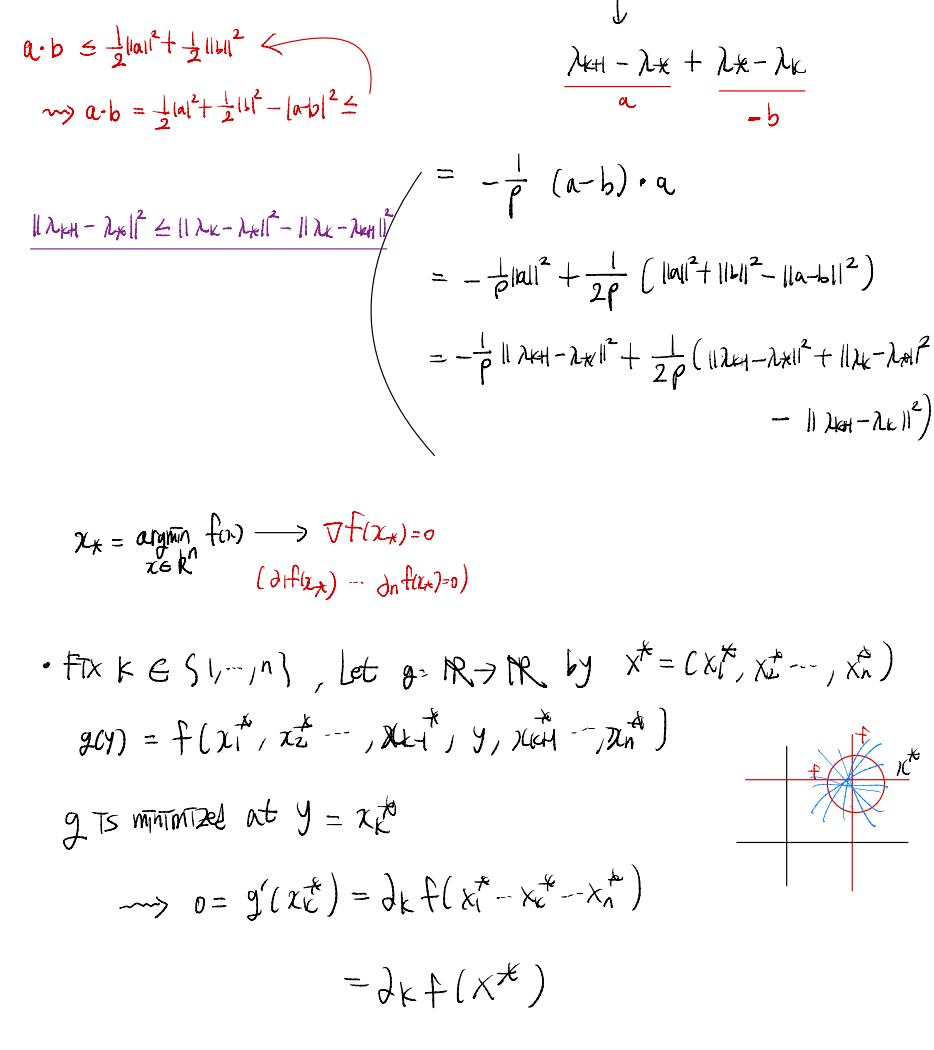 a·b ≤ 1/2||a||² + 1/2||b||²
⇝ a·b = 1/2|a|² + 1/2|b|² - |a-b|² ≤
||λk+1 - λ*||² ≤ ||λk - λ*||² - ||λk - λk+1||²
↓
λk+1 - λ* + λ* - λk
a
-b
= -1/ρ (a-b)·a
= -1/ρ||a||² + 1/2ρ (||a||² + ||b||² - ||a-b||²)
= -1/ρ||λk+1 - λ*||² + 1/2ρ (||λk+1 - λ*||² + ||λk - λ*||²
- ||λk+1 - λk||²)
x* = argmin f(x) → ∇f(x*)=0
x∈Rⁿ
(∂1f(x*) ··· ∂nf(x*)=0)
· Fix k ∈ {1,···,n}, Let g: ℝ→ℝ by x* = (x1*, x2* ···, xn*)
g(y) = f(x1*, x2* ···, xk-1*, y, xk+1* ···, xn*)
f
f
x*
g is minimized at y = xk*
⇝ 0 = g'(xk*) = ∂k f(x1* ·· xk* ·· xn*)
= ∂k f(x*)